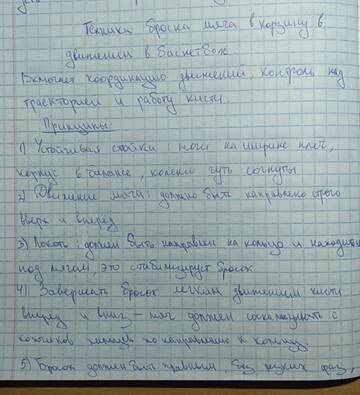 Техника броска мяча в корзину в
движении в баскетболе
Включает координацию движений, контроль над
траекторией и работу кисти.
Принципы:
1) Устойчивая стойка: ноги на ширине плеч,
корпус в балансе, колени чуть согнуты
2) Движение мяча: должно быть направлено строго
вверх и вперёд
3) Локоть: должен быть направлен на кольцо и находиться
под мячом, это стабилизирует бросок
4) Завершать бросок лёгким движением кисти
вперёд и вниз – мяч должен соскальзывать с
кончиков пальцев по направлению к кольцу.
5) Бросок должен быть плавным, без резких фаз,